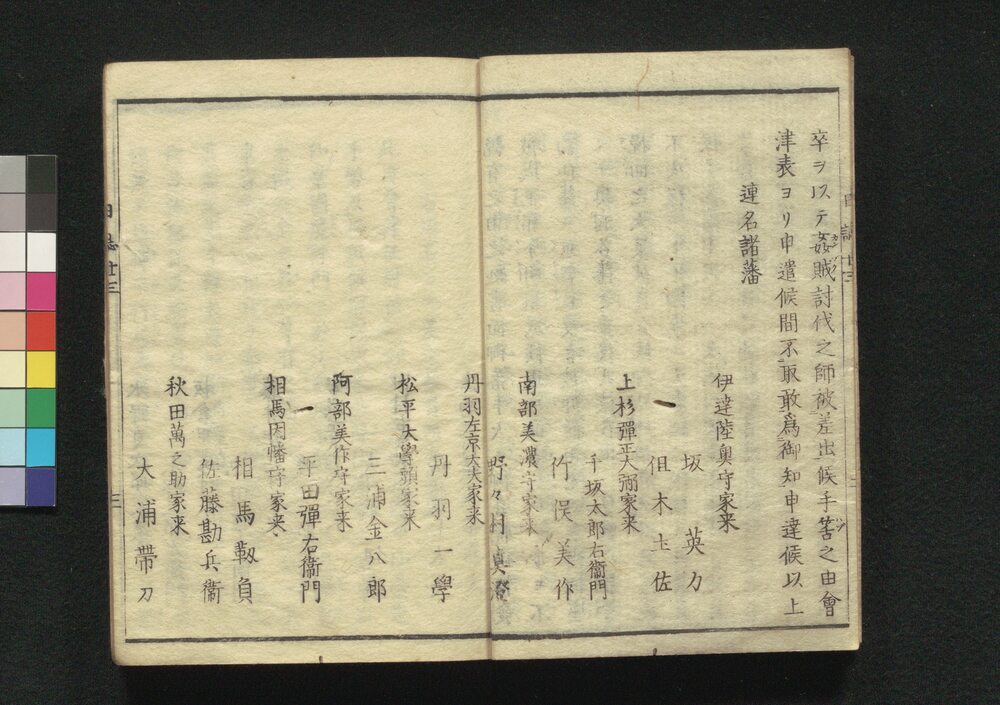 卒ヲ以テ姦賊討伐之師被差出候手筈之由會
津表ヨリ申遣候間不取敢爲御知申達候以上
連名諸藩
伊達陸奥守家来
坂英力
但木土佐
上杉彈正大弼家来
千坂太郎右衞門
竹俣美作
南部美濃守家来
野々村真澄
丹羽左京大夫家来
丹羽一學
松平大學頭家来
三浦金八郎
阿部美作守家来
平田彈右衞門
相馬因幡守家来
相馬靱負
佐藤勘兵衞
秋田萬之助家来
大浦帶刀
日誌廿三
三